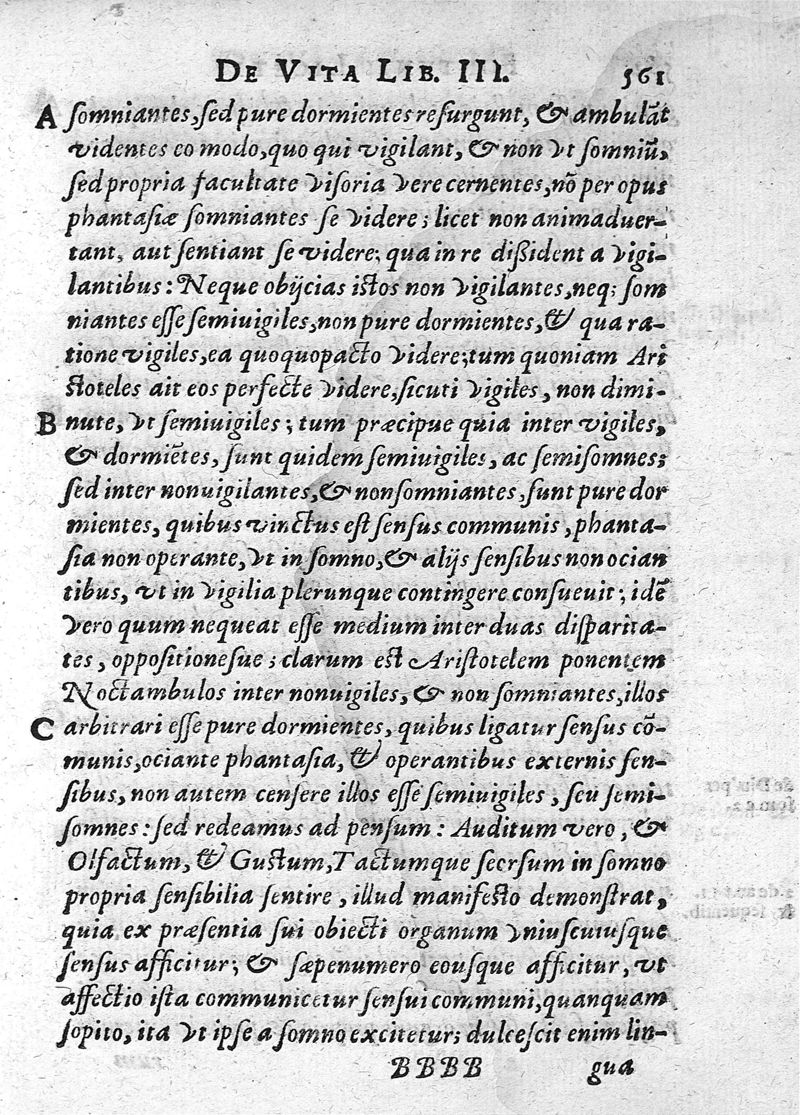 DE VITA LIB. III. 561
A somniantes, sed pure dormientes resurgunt, & ambulāt
videntes eo modo, quo qui vigilant, & non vt somniū,
sed propria facultate visoria vere cernentes, nō per opus
phantasiæ somniantes se videre; licet non animaduer-
tant, aut sentiant se videre; qua in re dissident a vigi-
lantibus: Neque obijcias istos non vigilantes, neq; som
niantes esse semiuigiles, non pure dormientes, & qua ra-
tione vigiles, ea quoquopacto videre; tum quoniam Ari
stoteles ait eos perfecte videre, sicuti vigiles, non dimi-
B nute, vt semiuigiles; tum præcipue quia inter vigiles,
& dormiētes, sunt quidem semiuigiles, ac semisomnes;
sed inter nonuigilantes, & nonsomniantes, sunt pure dor
mientes, quibus vinctus est sensus communis, phanta-
sia non operante, vt in somno, & alijs sensibus non ocian
tibus, vt in vigilia plerunque contingere consueuit; idē
vero quum nequeat esse medium inter duas disparita-
tes, oppositionesue; clarum est Aristotelem ponentem
Noctambulos inter nonuigiles, & non somniantes, illos
C arbitrari esse pure dormientes, quibus ligatur sensus cō-
munis, ociante phantasia, & operantibus externis sen-
sibus, non autem censere illos esse semiuigiles, seu semi-
somnes: sed redeamus ad pensum: Auditum vero, &
Olfactum, & Gustum, Tactumque seorsum in somno
propria sensibilia sentire, illud manifesto demonstrat,
quia ex præsentia sui obiecti organum vniuscuiusque
sensus afficitur; & sæpenumero eousque afficitur, vt
affectio ista communicetur sensui communi, quanquam
sopito, ita vt ipse a somno excitetur; dulcescit enim lin-
BBBB gua